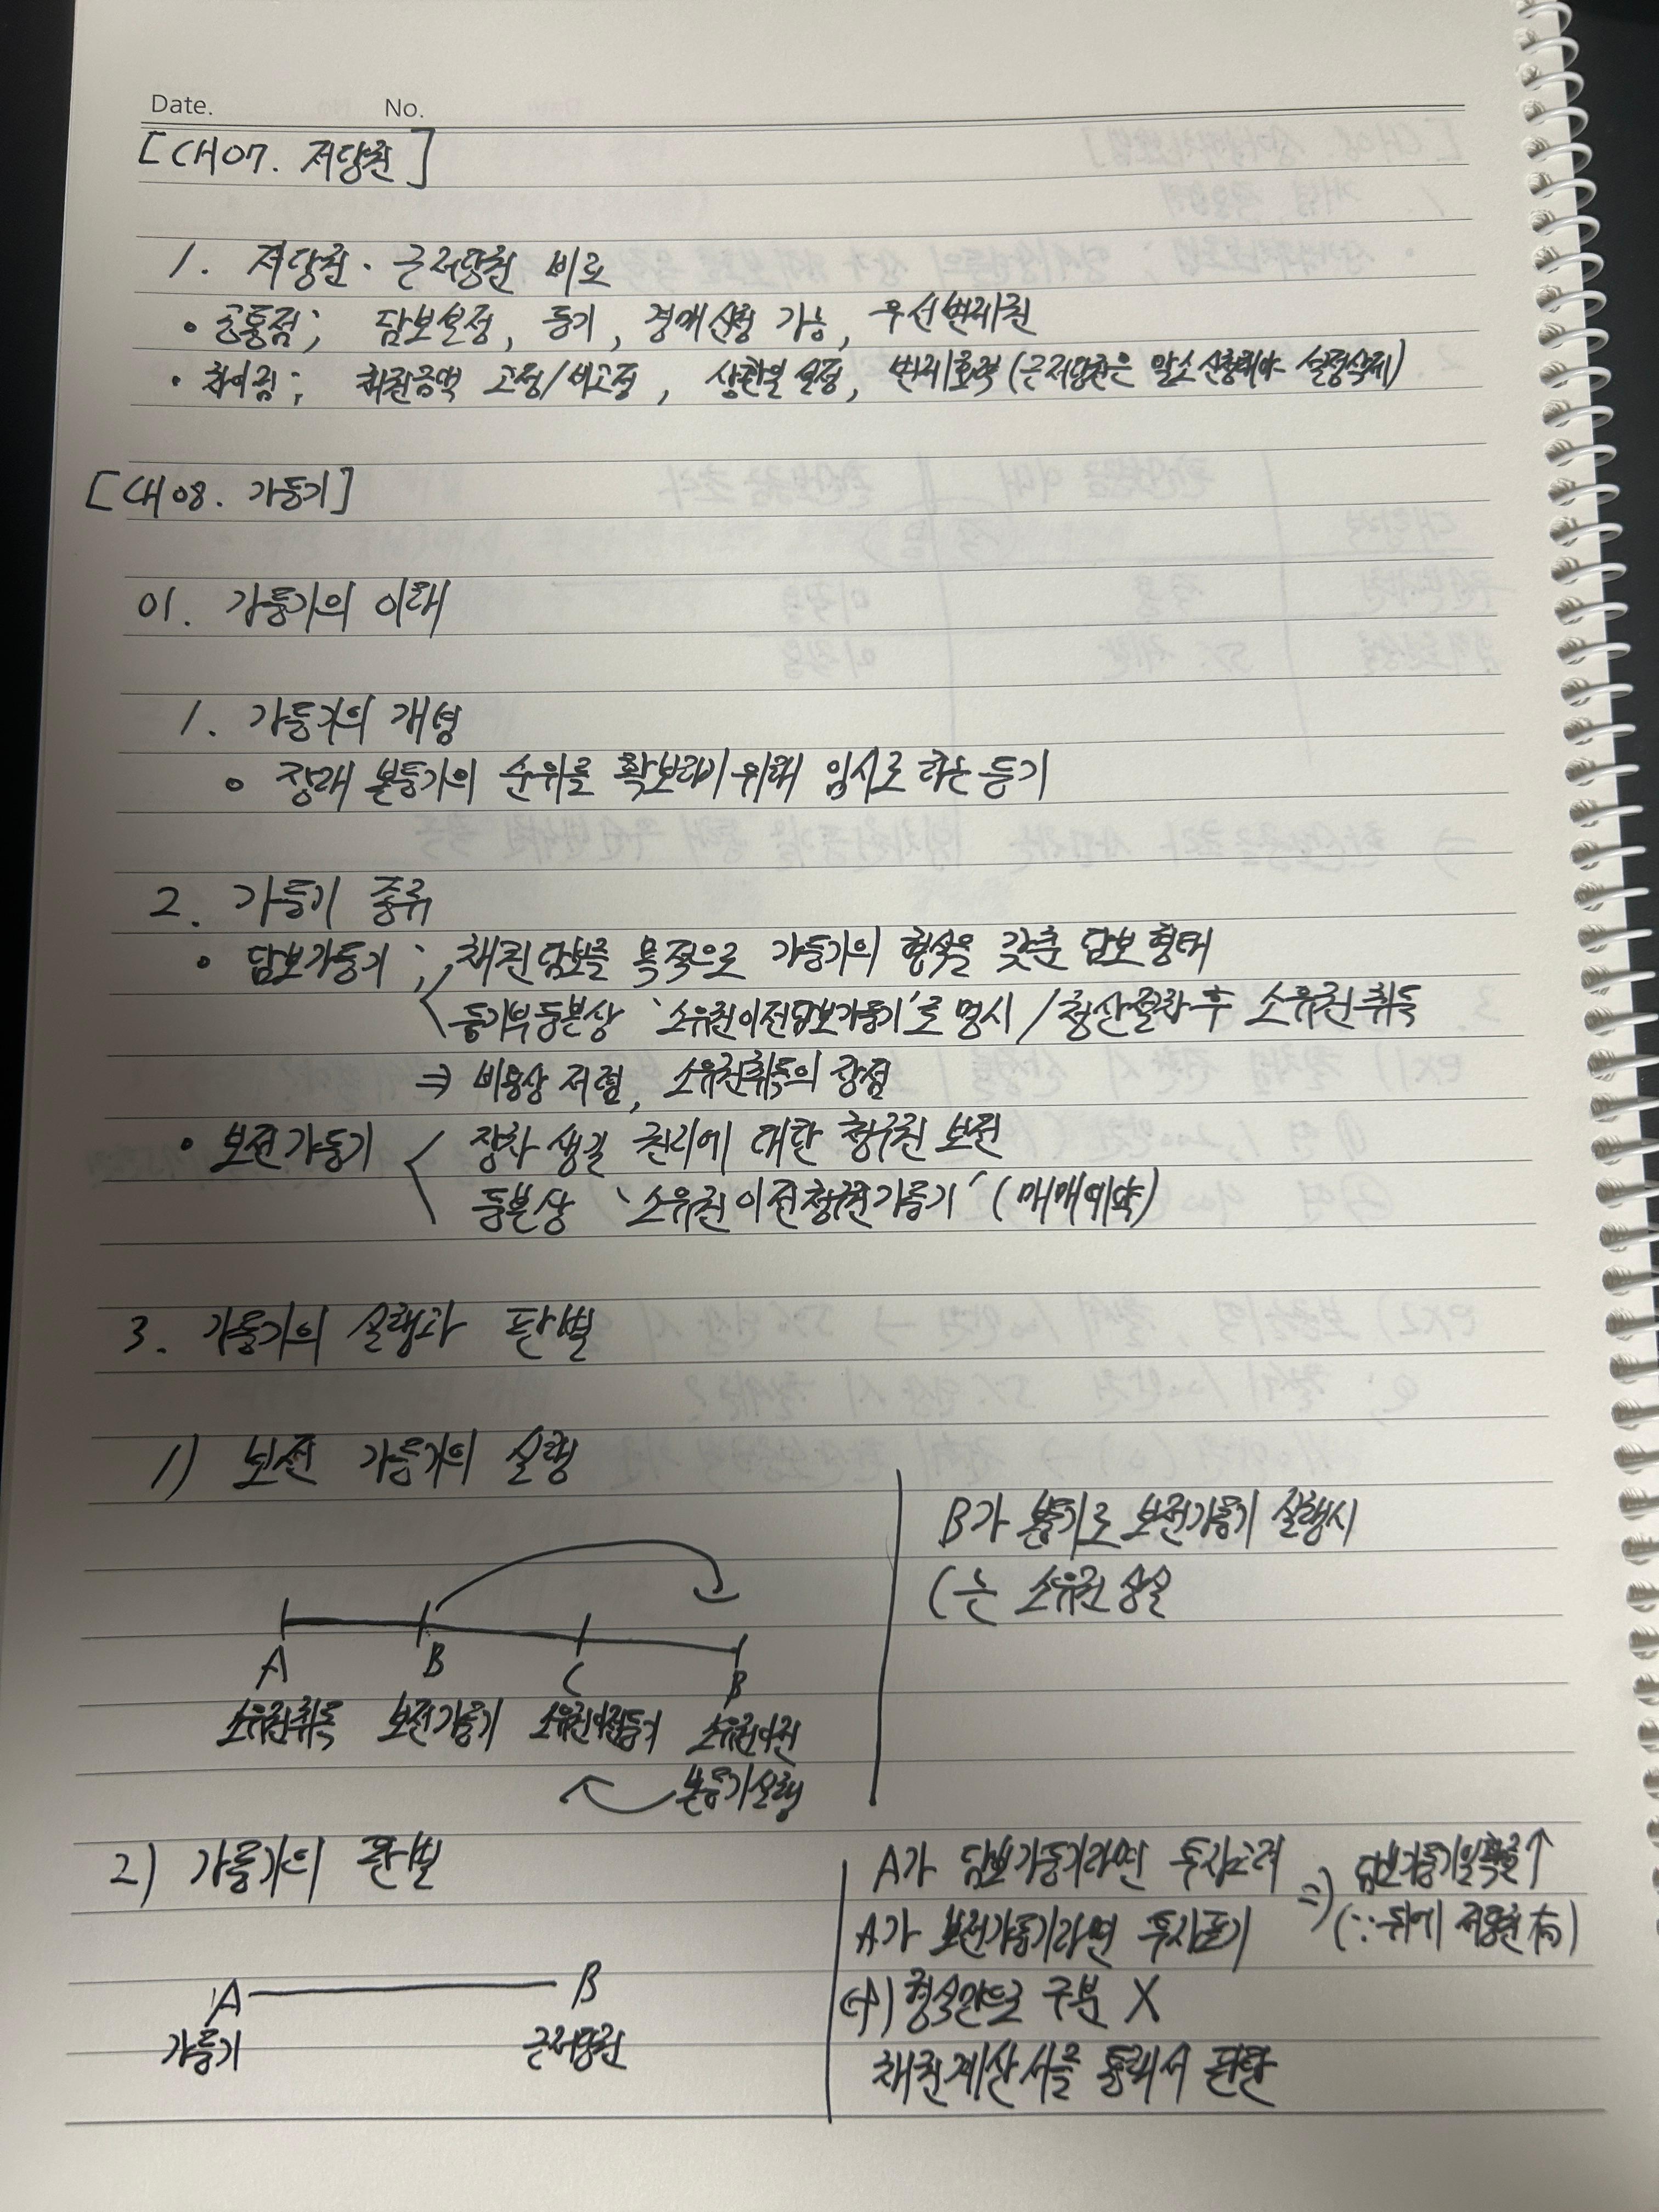 Date. No.
[CH07. 저당권]
1. 저당권·근저당권 비교
• 공통점; 담보설정, 등기, 경매신청 가능, 우선변제권
• 차이점; 채권금액 고정/비고정, 상환일 설정, 변제효력 (근저당권은 말소신청해야 설정삭제)
[CH08. 가등기]
01. 가등기의 이해
1. 가등기의 개념
• 장래 본등기의 순위를 확보하기 위해 임시로 하는 등기
2. 가등기 종류
• 담보가등기; 채권담보를 목적으로 가등기의 형식을 갖춘 담보형태
등기부등본상 '소유권이전담보가등기'로 명시 / 청산절차 후 소유권취득
⇒ 비용상 저렴, 소유권취득의 강점
• 보전가등기 < 장차 생길 권리에 대한 청구권 보전
등본상 '소유권이전청구권가등기' (매매예약)
3. 가등기의 실행과 판별
1) 보전 가등기의 실행
B가 본등기로 보전가등기 실행시
C는 소유권 상실
A B C B
소유권취득 보전가등기 소유권이전등기 소유권이전
본등기실행
2) 가등기의 판별
A가 담보가등기라면 투자고려 ⇒ 담보가등기일 확률↑
A가 보전가등기라면 투자포기 (∵뒤에 저당권 有)
형식만으로 구분 X
채권계산서를 통해서 판단
A B
가등기 근저당권